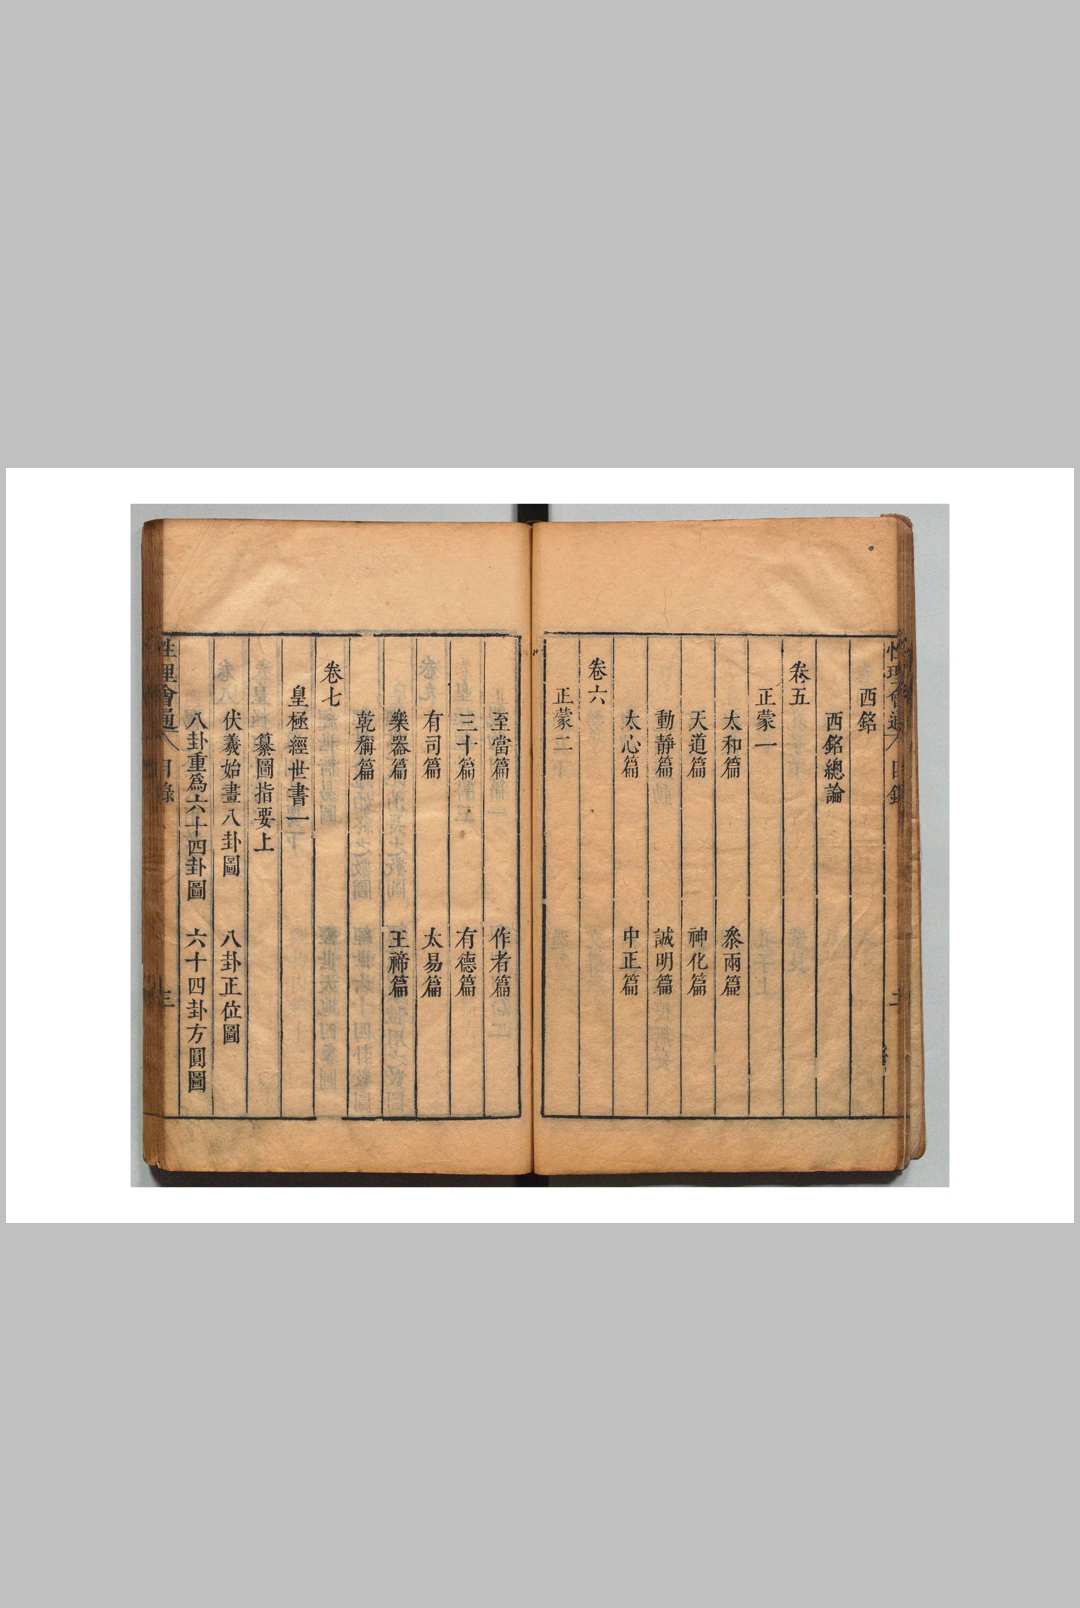 西銘
西銘總論
卷五
正蒙一
太和篇 叅兩篇
天道篇 神化篇
動靜篇 誠明篇
太心篇 中正篇
卷六
正蒙二
至當篇 作者篇
三十篇 有德篇
有司篇 太易篇
樂器篇 王禘篇
乾稱篇
卷七
皇極經世書一
纂圖指要上
伏羲始畫八卦圖 八卦正位圖
八卦重爲六十四卦圖 六十四卦方圓圖
性理會通 目錄 三